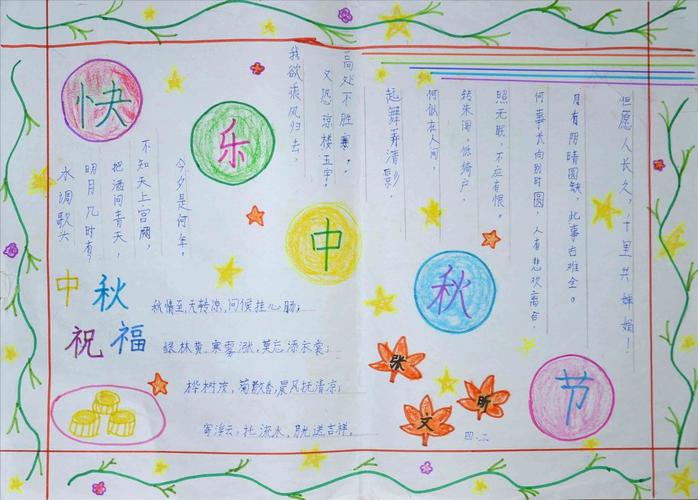 快乐中秋节
水调歌头
明月几时有，
把酒问青天，
不知天上宫阙，
今夕是何年。
我欲乘风归去，
又恐琼楼玉宇，
高处不胜寒，
起舞弄清影，
何似在人间，
转朱阁，低绮户，
照无眠，不应有恨。
何事长向别时圆，人有悲欢离合，
月有阴晴圆缺，此事古难全。
但愿人长久，千里共婵娟！
中秋
祝福
秋情至，天转凉，问候挂心肠；
绿林黄，寒雾涨，莫忘添衣裳；
桦树茂，菊散香，晨风抚清凉；
寄浮云，托流水，附送吉祥。
张
文
昕
四.二